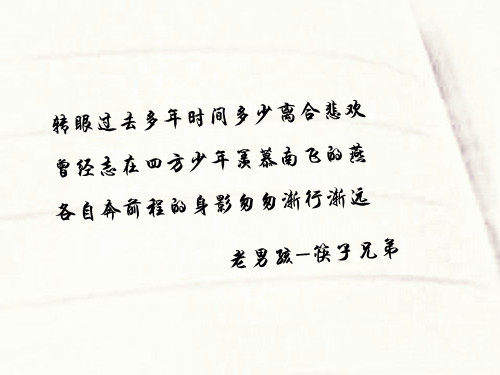 转眼过去多年时间多少离合悲欢
曾经志在四方少年羡慕南飞的燕
各自奔前程的身影匆匆渐行渐远
老男孩-筷子兄弟